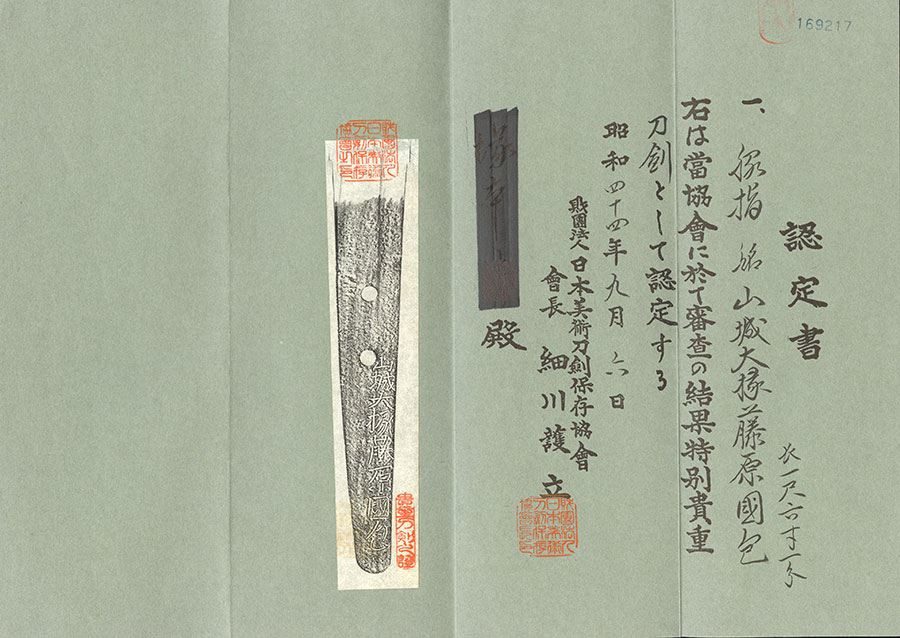 169217
認定書
一、脇指 銘 山城大掾藤原國包
長一尺六寸一分
右は當協會に於て審査の結果特別貴重
刀劍として認定する
昭和四十四年九月六日
財團法人日本美術刀劍保存協會
會長 細川護立
殿
財團法人
日本美術
刀劍保存
協會會長印
山城大掾藤原國包
貴重刀剣之證